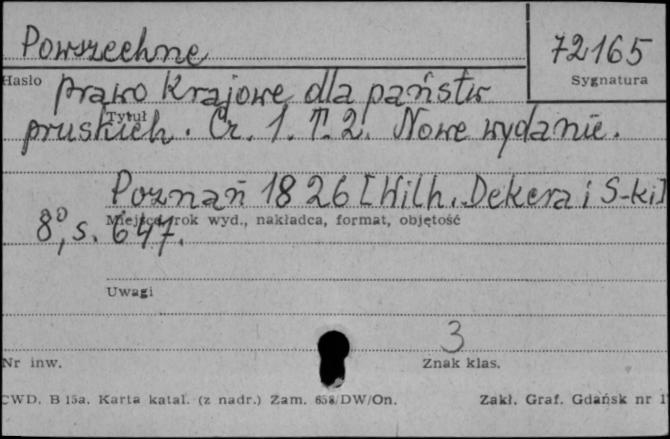 Powszechne
72165
Hasło
Sygnatura
prawo Krajowe dla państw
Tytuł
pruskich. Cz. 1. T. 2. Nowe wydanie.
Poznań 1826 [Wilh. Dekera i S-ki]
Miejsce, rok wyd., nakładca, format, objętość
8°, s. 647.
Uwagi
3
Nr inw.
Znak klas.
CWD. B 15a. Karta katal. (z nadr.) Zam. 658/DW/On.
Zakł. Graf. Gdańsk nr 1